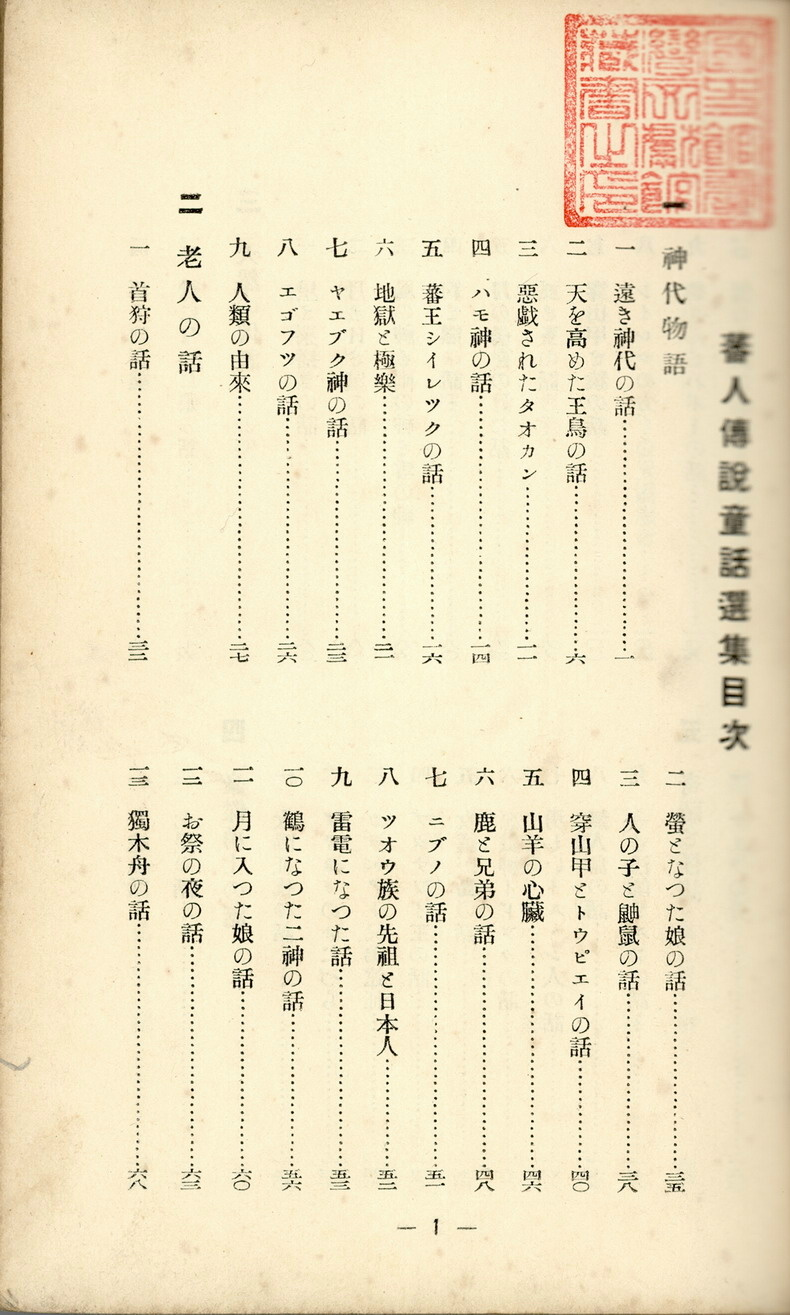 蕃人傳說童話選集目次
一 神代物語
一 遠き神代の話…………一
二 天を高めた王鳥の話…………六
三 惡戯されたタオカン…………一一
四 ハモ神の話…………一四
五 蕃王シイレツクの話…………一六
六 地獄と極樂…………二一
七 ヤエブク神の話…………二三
八 エゴフツの話…………二六
九 人類の由來…………二七
二 老人の話
一 首狩の話…………三二
二 螢となつた娘の話…………三五
三 人の子と鼬鼠の話…………三八
四 穿山甲とトウピエイの話…………四〇
五 山羊の心臟…………四六
六 鹿と兄弟の話…………四八
七 ニブノの話…………五一
八 ツオウ族の先祖と日本人…………五二
九 雷電になつた話…………五三
一〇 鶴になつた二神の話…………五六
一一 月に入つた娘の話…………六〇
一二 お祭の夜の話…………六三
一三 獨木舟の話…………六八
— 1 —